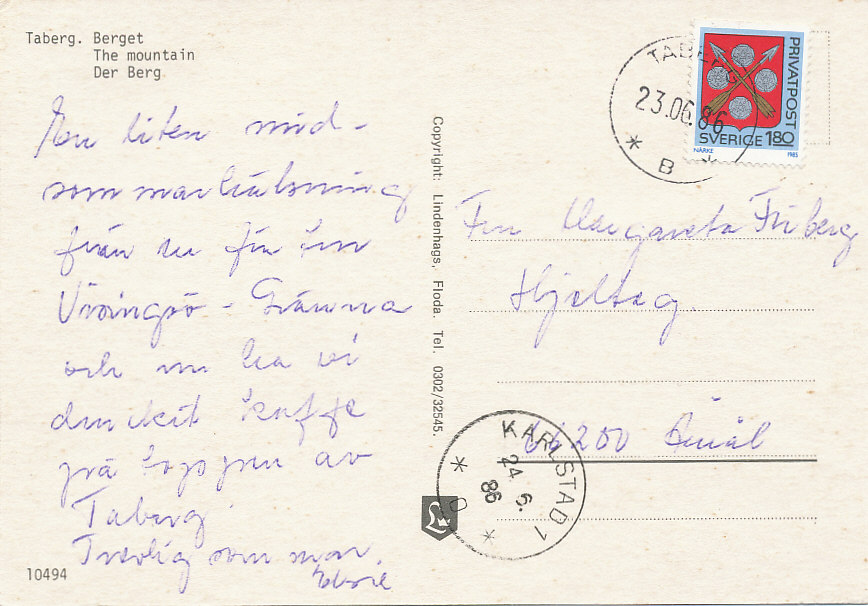 Taberg. Berget
The mountain
Der Berg
En liten mid-
sommarhälsning
från en fin tur
Visingsö - Gränna
och nu ha vi
druckit kaffe
på toppen av
Taberg.
Trevlig sommar.
10494
Copyright: Lindenhags, Floda. Tel. 0302/32545.
TABERG
23.06.86
* B *
PRIVATPOST
SVERIGE 1.80
NÄRKE 1985
Fru Margareta Friberg
Hjelteg.
66200 Åmål
KARLSTAD 1
24. 6.
86
* *
L